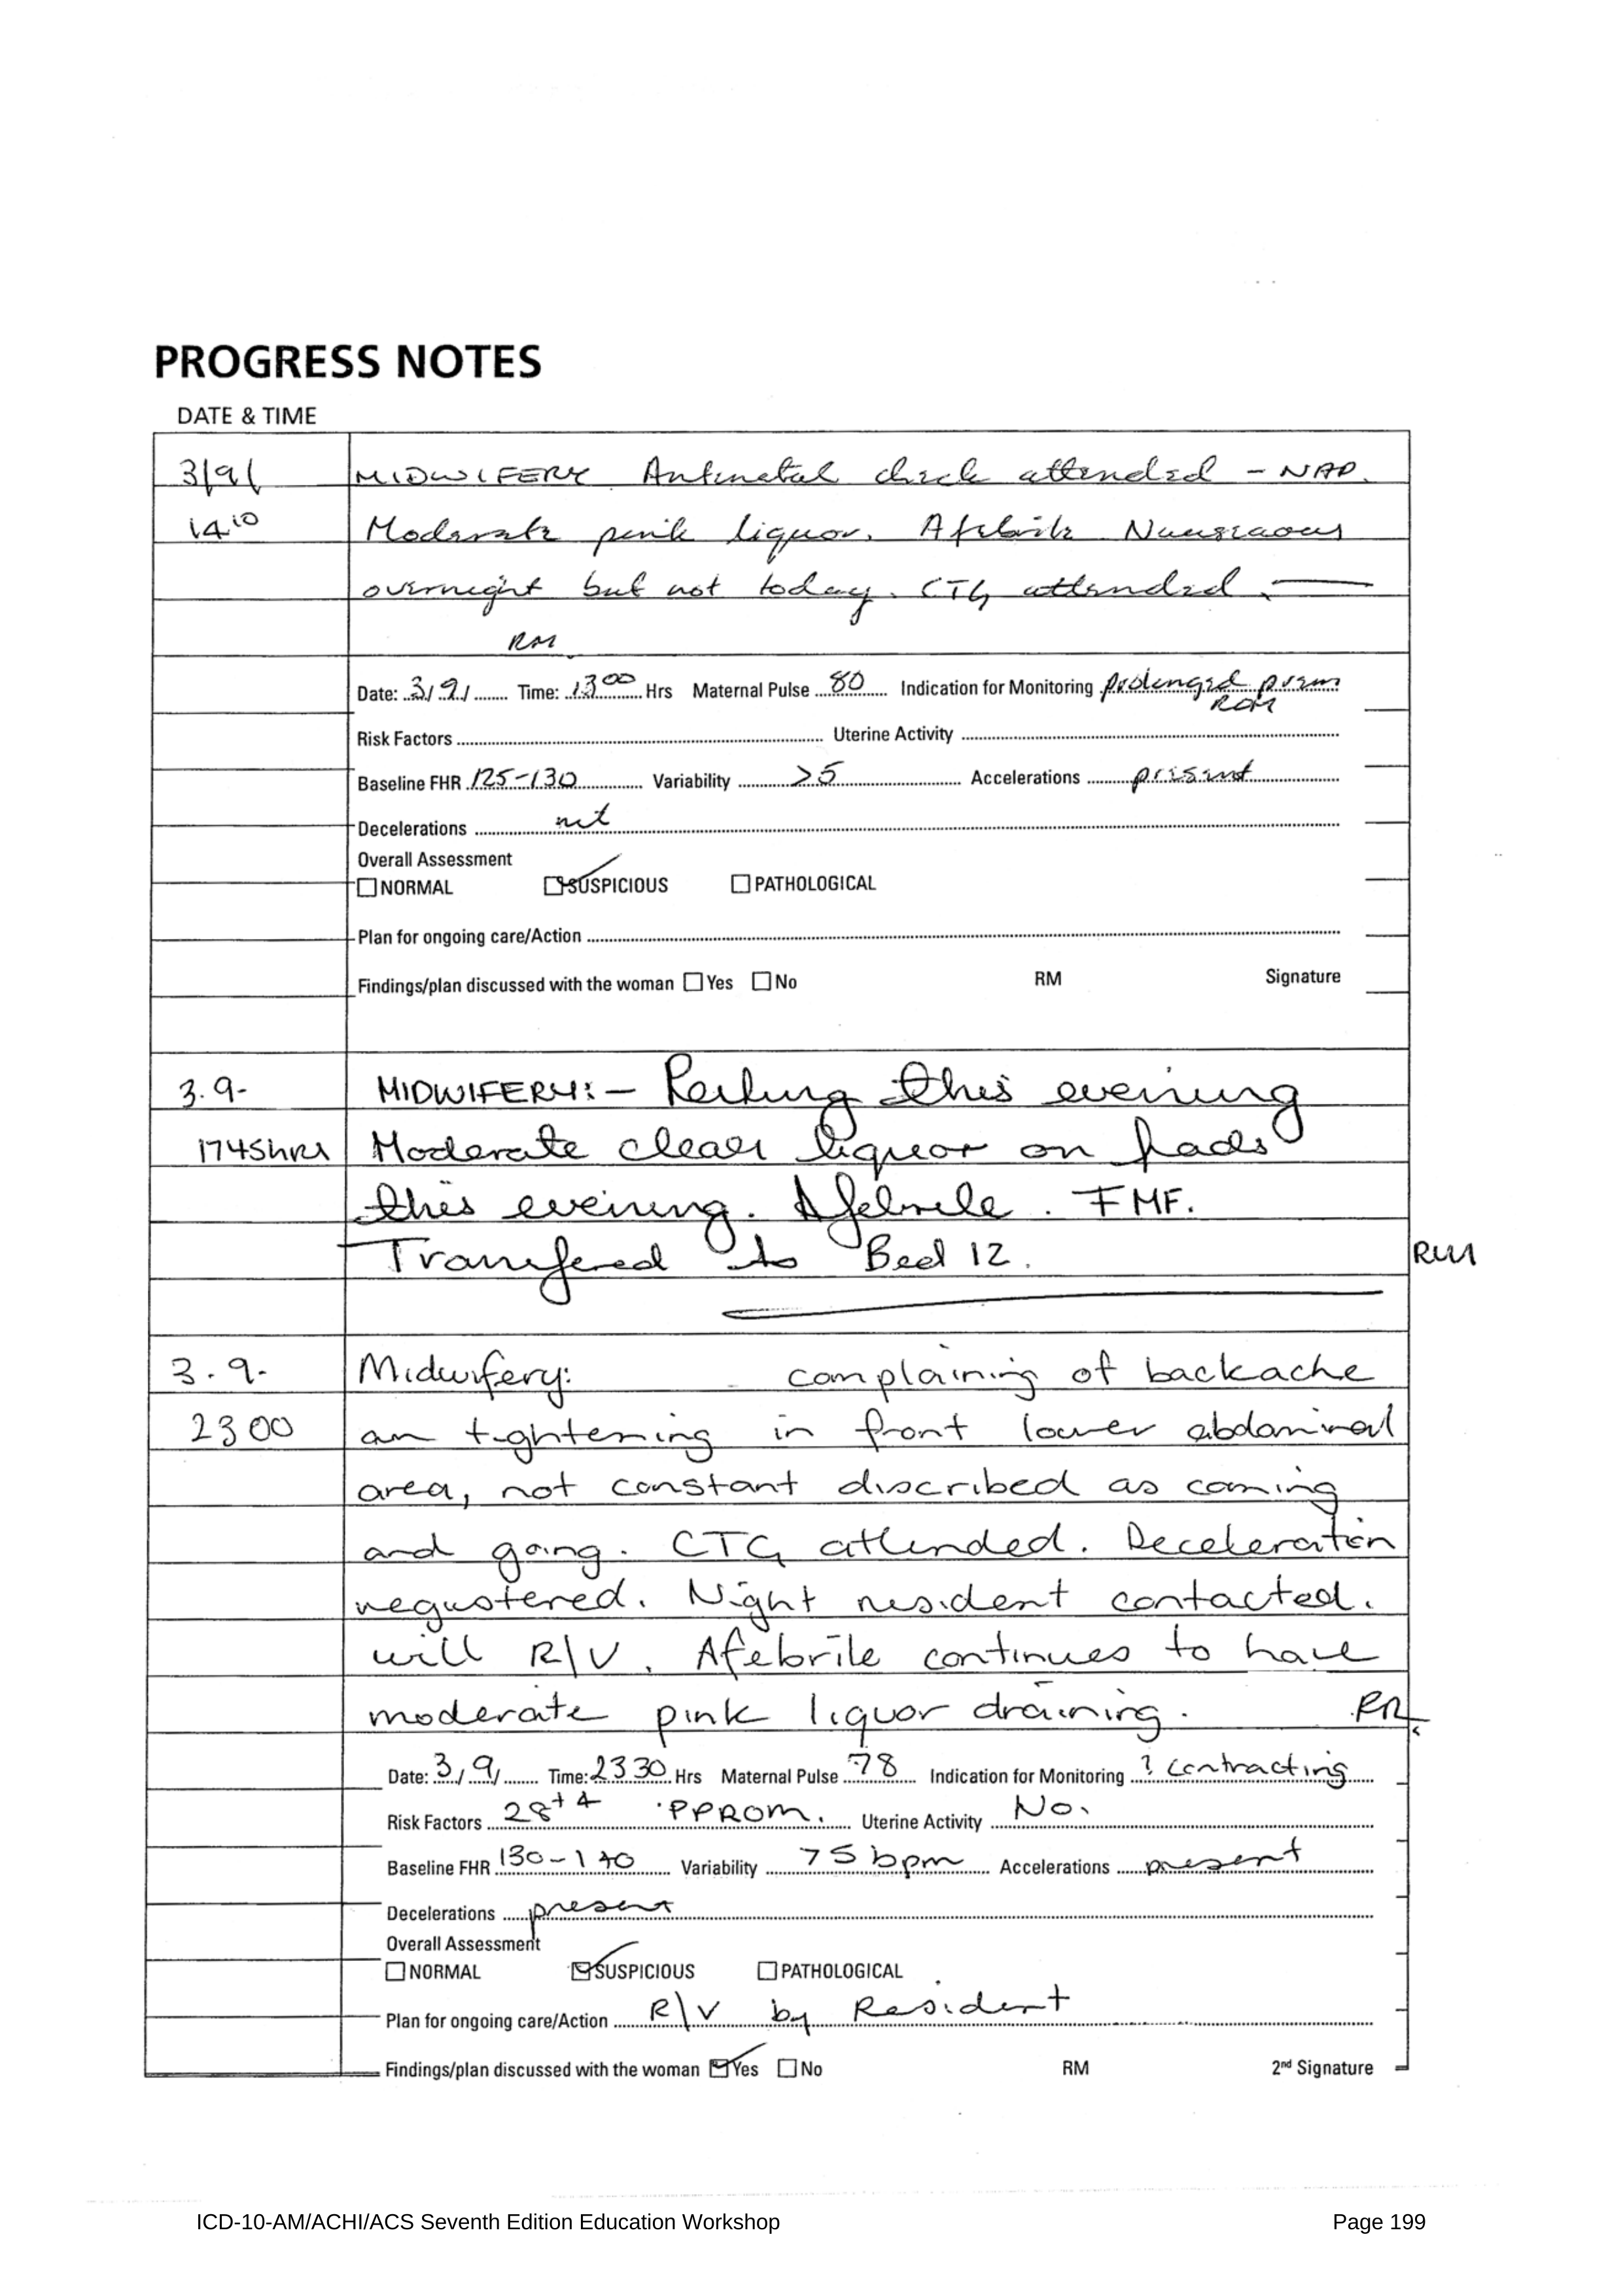 PROGRESS NOTES
DATE & TIME
3/9/ MIDWIFERY Antinatal check attended - NAD.
1410 Moderate pink liquor. Afebrile Nauseaous
overnight but not today. CTG attended.
RM
Date: 3/9/ Time: 1300 Hrs Maternal Pulse 80 Indication for Monitoring prolonged prem
ROM
Risk Factors Uterine Activity
Baseline FHR 125-130 Variability >5 Accelerations present
Decelerations
Overall Assessment
NORMAL SUSPICIOUS PATHOLOGICAL
Plan for ongoing care/Action
Findings/plan discussed with the woman Yes No RM Signature
3.9- MIDWIFERY:- Resting this evening
1745hrs Moderate clear liqueor on pads
this evening. Afebrile. FMF.
Transfered to Bed 12. RM
3.9. Midwifery: complaining of backache
2300 an tightening in front lower abdominal
area, not constant discribed as coming
and going. CTG attended. Deceleration
regustered. Night resident contacted.
will R/V. Afebrile continues to have
moderate pink liquor draining.
Date: 3/9/ Time: 2330 Hrs Maternal Pulse 78 Indication for Monitoring ? contracting
Risk Factors 28+4 PPROM. Uterine Activity No.
Baseline FHR 130-140 Variability 75bpm Accelerations present
Decelerations present
Overall Assessment
NORMAL SUSPICIOUS PATHOLOGICAL
Plan for ongoing care/Action R\V by Resident
Findings/plan discussed with the woman Yes No RM 2nd Signature
ICD-10-AM/ACHI/ACS Seventh Edition Education Workshop Page 199